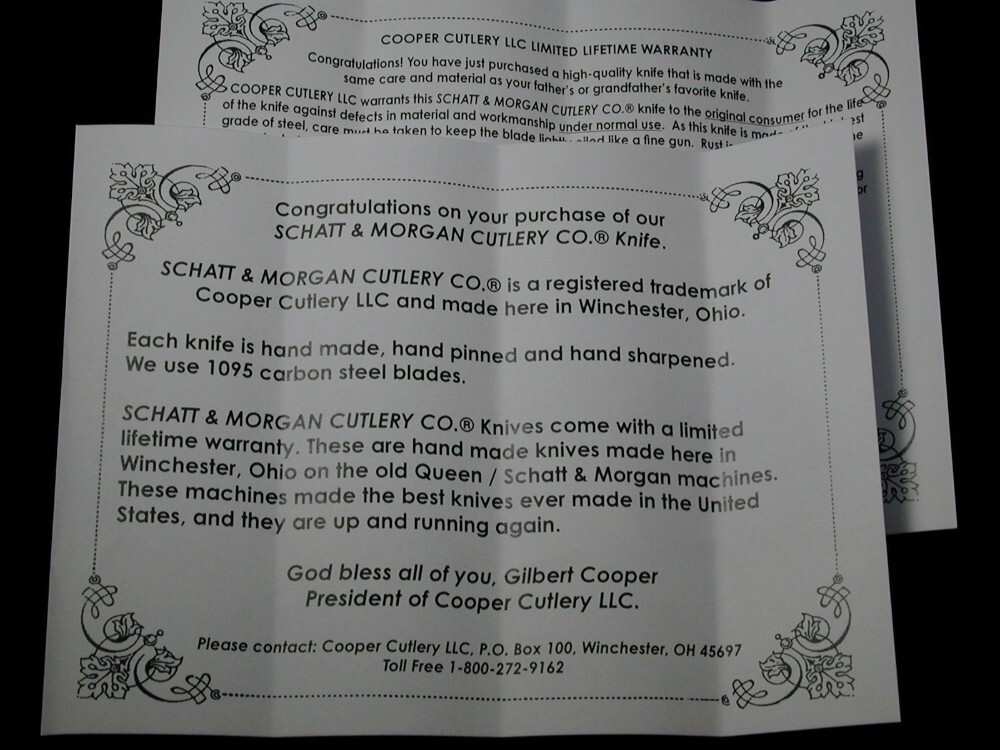 COOPER CUTLERY LLC LIMITED LIFETIME WARRANTY
Congratulations! You have just purchased a high-quality knife that is made with the
same care and material as your father's or grandfather's favorite knife.
COOPER CUTLERY LLC warrants this SCHATT & MORGAN CUTLERY CO.® knife to the original consumer for the life
of the knife against defects in material and workmanship under normal use. As this knife is made
grade of steel, care must be taken to keep the blade lightly oiled like a fine gun. Rust
Congratulations on your purchase of our
SCHATT & MORGAN CUTLERY CO.® Knife.
SCHATT & MORGAN CUTLERY CO.® is a registered trademark of
Cooper Cutlery LLC and made here in Winchester, Ohio.
Each knife is hand made, hand pinned and hand sharpened.
We use 1095 carbon steel blades.
SCHATT & MORGAN CUTLERY CO.® Knives come with a limited
lifetime warranty. These are hand made knives made here in
Winchester, Ohio on the old Queen / Schatt & Morgan machines.
These machines made the best knives ever made in the United
States, and they are up and running again.
God bless all of you, Gilbert Cooper
President of Cooper Cutlery LLC.
Please contact: Cooper Cutlery LLC, P.O. Box 100, Winchester, OH 45697
Toll Free 1-800-272-9162